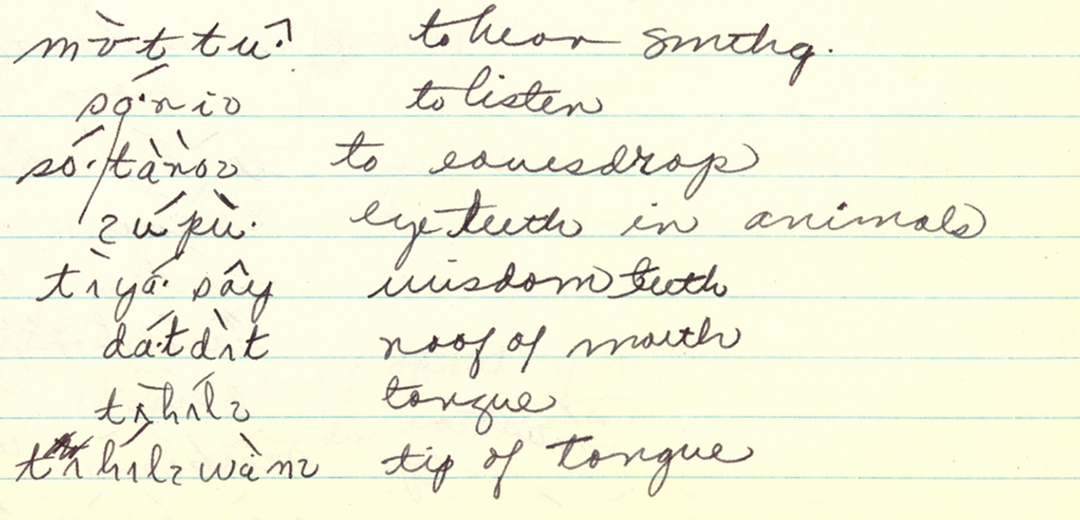 mòt tu·̂ to hear smthg.
só·niɔ to listen
só·/tàǹoɔ to eavesdrop
zú pù· eye teeth in animals
tìyá· sây wisdom teeth
dá·tdìt roof of mouth
tìhílɔ tongue
tìhílɔwànɔ tip of tongue